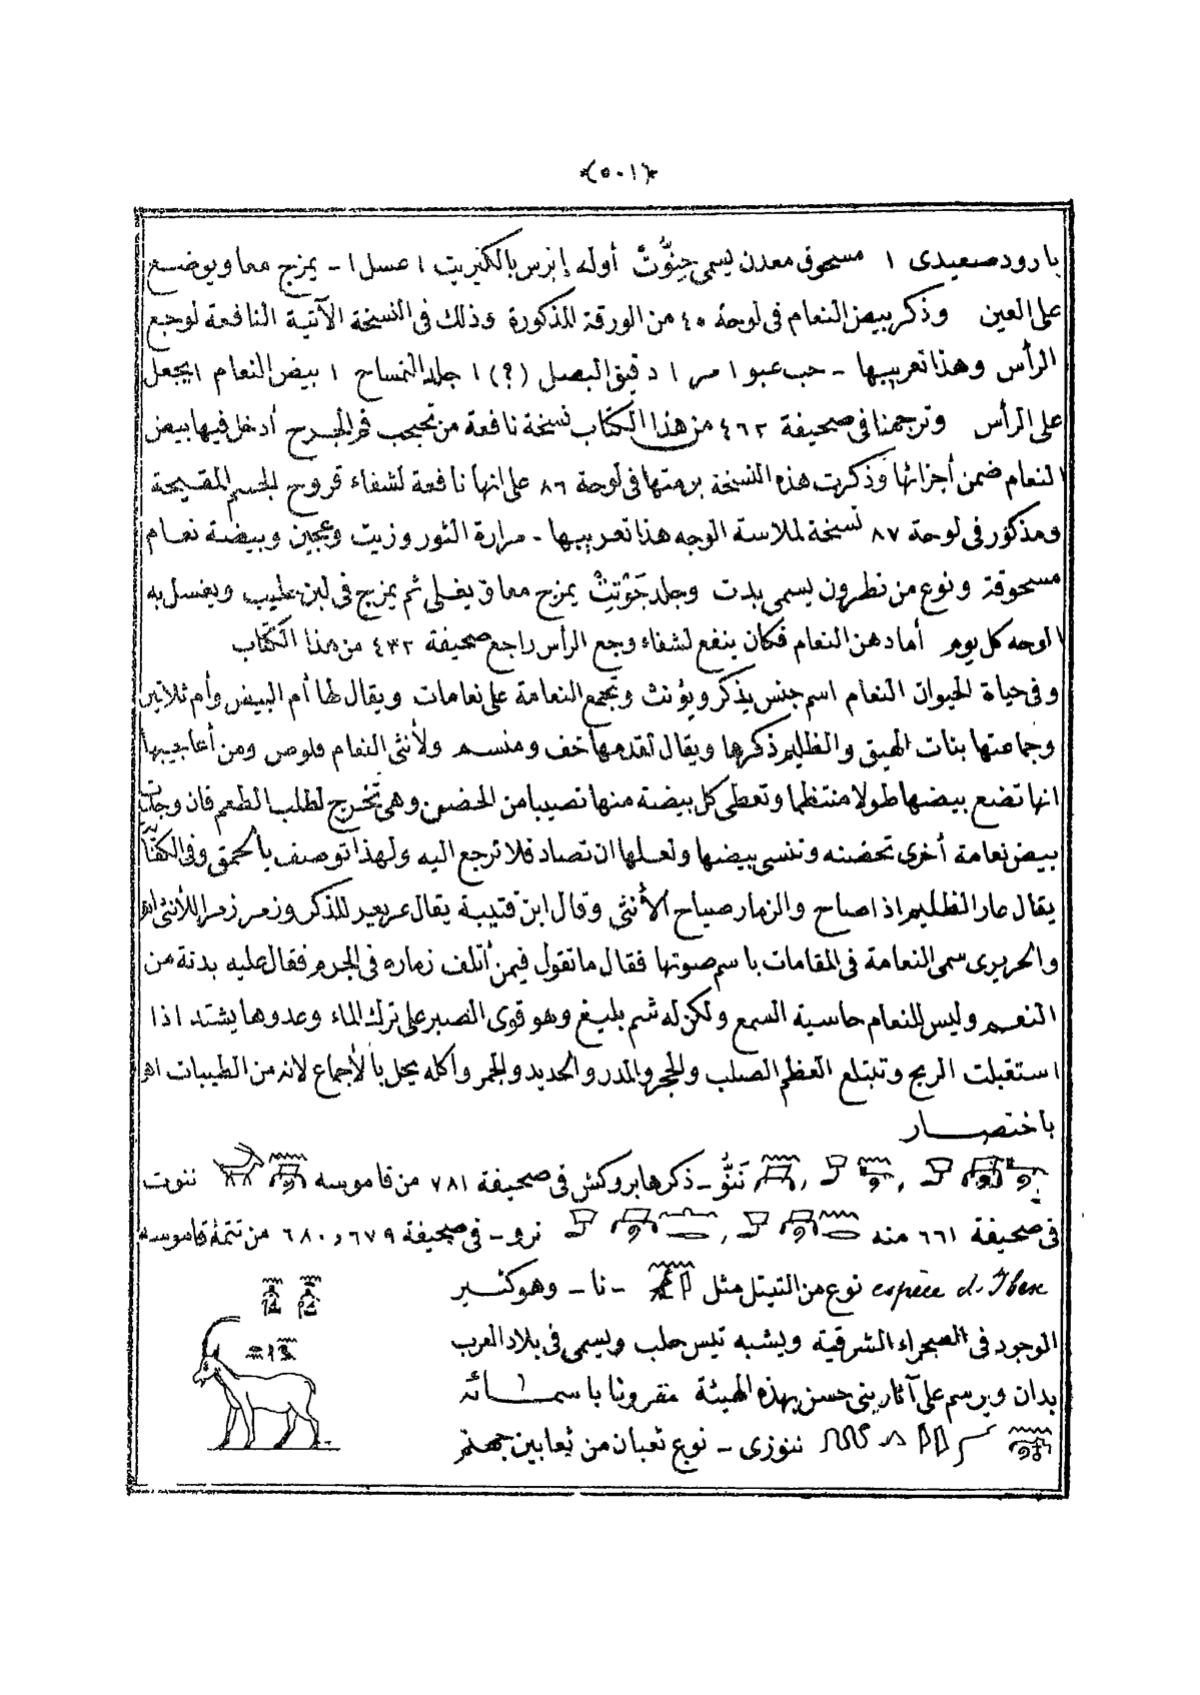 ﴿٥٠١﴾
بارود صعيدى ١ مسحوق معدن يسمى حِنوُّتْ أوله إبرس بالكبريت ١ عسل ١ ـ يمزج معا ويوضع
على العين وذكر بيض النعام فى لوحة ٤٥ من الورقة المذكورة وذلك فى النسخة الآتية النافعة لوجع
الرأس وهذا تعريبها ـ حب عبو ١ مر ١ دقيق البصل (؟) ١ جلد التمساح ١ بيض النعام ١ يجعل
على الرأس وترجمنا فى صحيفة ٤٦٢ من هذا الكتاب نسخة نافعة من تحبحب فم الجرح أدخل فيها بيض
النعام ضمن أجزائها وذكرت هذه النسخة برمتها فى لوحة ٨٦ على انها نافعة لشفاء قروح الجسم المقيحة
ومذكور فى لوحة ٨٧ نسخة لملاسة الوجه هذا تعريبها ـ مرارة الثور وزيت وعجين وبيضة نعام
مسحوقة ونوع من نطرون يسمى بدت وجلد جَوْتِيتْ يمزج معا ويغلى ثم يمزج فى لبن حليب ويغسل به
الوجه كل يوم أما دهن النعام فكان ينفع لشفاء وجع الرأس راجع صحيفة ٤٣٢ من هذا الكتاب
وفى حياة الحيوان النعام اسم جنس يذكر ويؤنث وتجمع النعامة على نعامات ويقال لها أم البيض وأم ثلاثين
وجماعتها بنات الهيق والظليم ذكرها ويقال لقدمها خف ومنسم ولأنثى النعام قلوص ومن أعاجيبها
انها تضع بيضها طولا منتظما وتعطى كل بيضة منها نصيبا من الحضن وهى تخرج لطلب الطعم فان وجدت
بيض نعامة أخرى تحضنه وتنسى بيضها ولعلها ان تصاد فلا ترجع اليه ولهذا توصف بالحمق وفى الكفاية
يقال عار الظليم اذا صاح والزمار صياح الأنثى وقال ابن قتيبة يقال عر يعير للذكر وزمر زمرا للأنثى اه
والحريرى سمى النعامة فى المقامات باسم صوتها فقال ما تقول فيمن أتلف زماره فى الحرم فقال عليه بدنة من
النعم وليس للنعام حاسية السمع ولكن له شم بليغ وهو قوى الصبر على ترك الماء وعدوها يشتد اذا
استقبلت الريح وتبتلع العظم الصلب والحجر والمدر والحديد والجمر وأكله يحل بالأجماع لانه من الطيبات اه
باختصار
نَنوُّ ـ ذكرها بروكش فى صحيفة ٧٨١ من قاموسه ننوت
فى صحيفة ٦٦١ منه نرو ـ فى صحيفة ٦٧٩ و ٦٨٠ من تتمة قاموسه
espèce d'Ibex نوع من التيتل مثل ـ نا ـ وهو كثير
الموجود فى الصحراء الشرقية ويشبه تيس حلب ويسمى فى بلاد العرب
بدان ويرسم على آثار بنى حسن بهذه الهيئة مقرونا باسمائه
ننوزى ـ نوع ثعبان من ثعابين جهنم